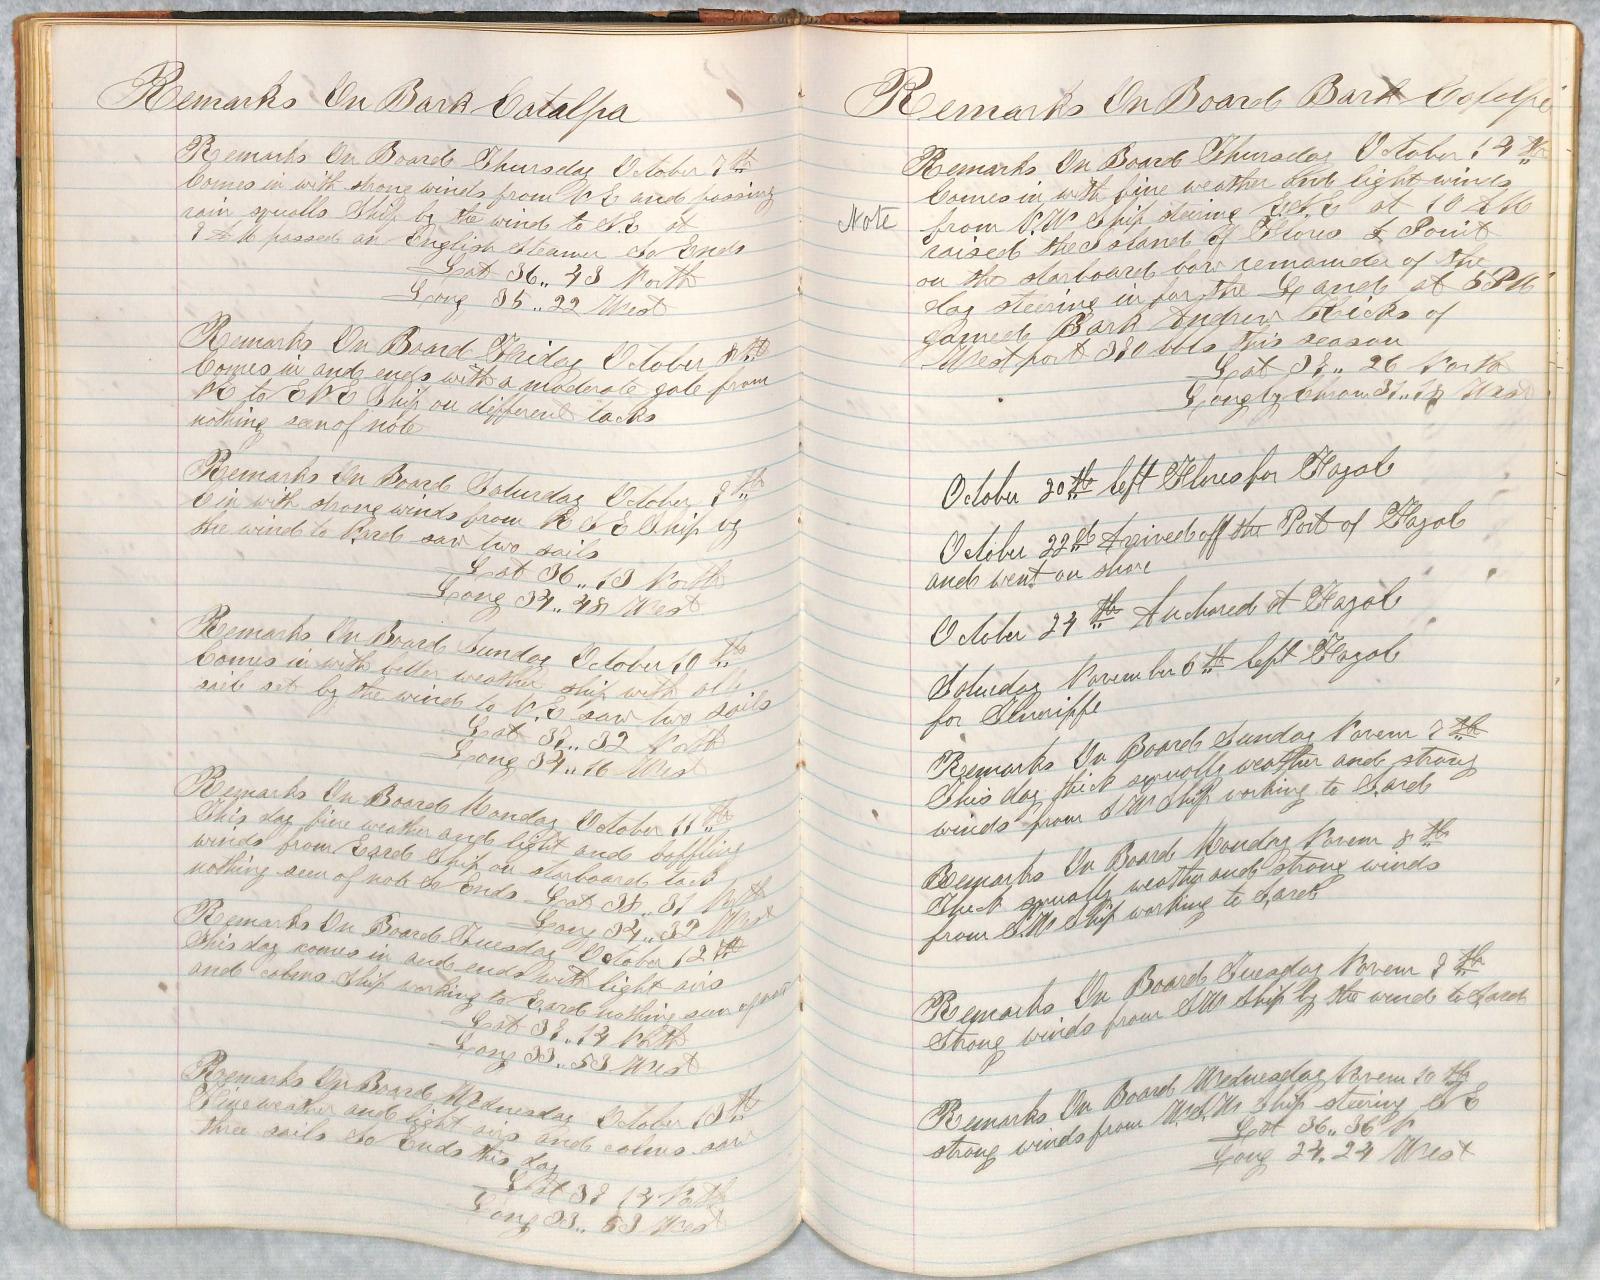 Remarks On Bark Catalpa
Remarks On Board Thursday October 7th
Comes in with strong winds from N E and passing
rain squalls Ship by the wind to N.E at
9 A M passed an English Steamer So Ends
Lat 36,, 43 North
Long 35,, 22 West
Remarks On Board Friday October 8th
Comes in and ends with a moderate gale from
NE to ENE Ship on different tacks
nothing seen of note
Remarks On Board Saturday October 9th
C in with strong winds from N E Ship by
the wind to saw two sails
Lat 36,, 13 North
Long 34,, 48 West
Remarks On Board Sunday October 10th
Comes in with better weather ship with all
sail set by the wind to N.E saw two sails
Lat 37,, 32 North
Long 34,, 16 West
Remarks On Board Monday October 11th
This day fine weather and light and baffling
winds from Eard Ship on starboard tack
nothing seen of note So Ends Lat 38,, 37 North
Long 34,, 32 West
Remarks On Board Tuesday October 12th
This day comes in and ends with light airs
and calms Ship working to Eard nothing seen of note
Lat 39,, 14 North
Long 33,, 53 West
Remarks On Board Wednesday October 13th
Fine weather and light airs and calms saw
three sails So Ends this day
Lat 39 14 North
Long 33,, 53 West
Remarks On Board Bark Catalpa
Remarks On Board Thursday October 14th
Comes in with fine weather and light winds
Note from N.W Ship steering at 10 A M
raised the Island of Flores Point
on the starboard bow remainder of the
day steering in for the Land at 5 PM
gamed Bark Andrew Hicks of
Westport 380 bbls this season
Lat 39,, 26 North
Long by Chrom 31,, West
October 20th left Flores for Fayal
October 22d Arived off the Port of Fayal
and went on shore
October 24th Anchored At Fayal
Saturday November 6th left Fayal
for Teneriffe
Remarks On Board Sunday Novem 7th
This day thick squally weather and strong
winds from S W Ship working to Eard
Remarks On Board Monday Novem 8th
Thick squally weather and strong winds
from S.W Ship working to Eard
Remarks On Board Tuesday Novem 9th
Strong winds from S W Ship by the wind to Eard
Remarks On Board Wednesday Novem 10th
strong winds from W.S.W Ship steering S E
Lat 36,, 36 N
Long 24,, 24 West